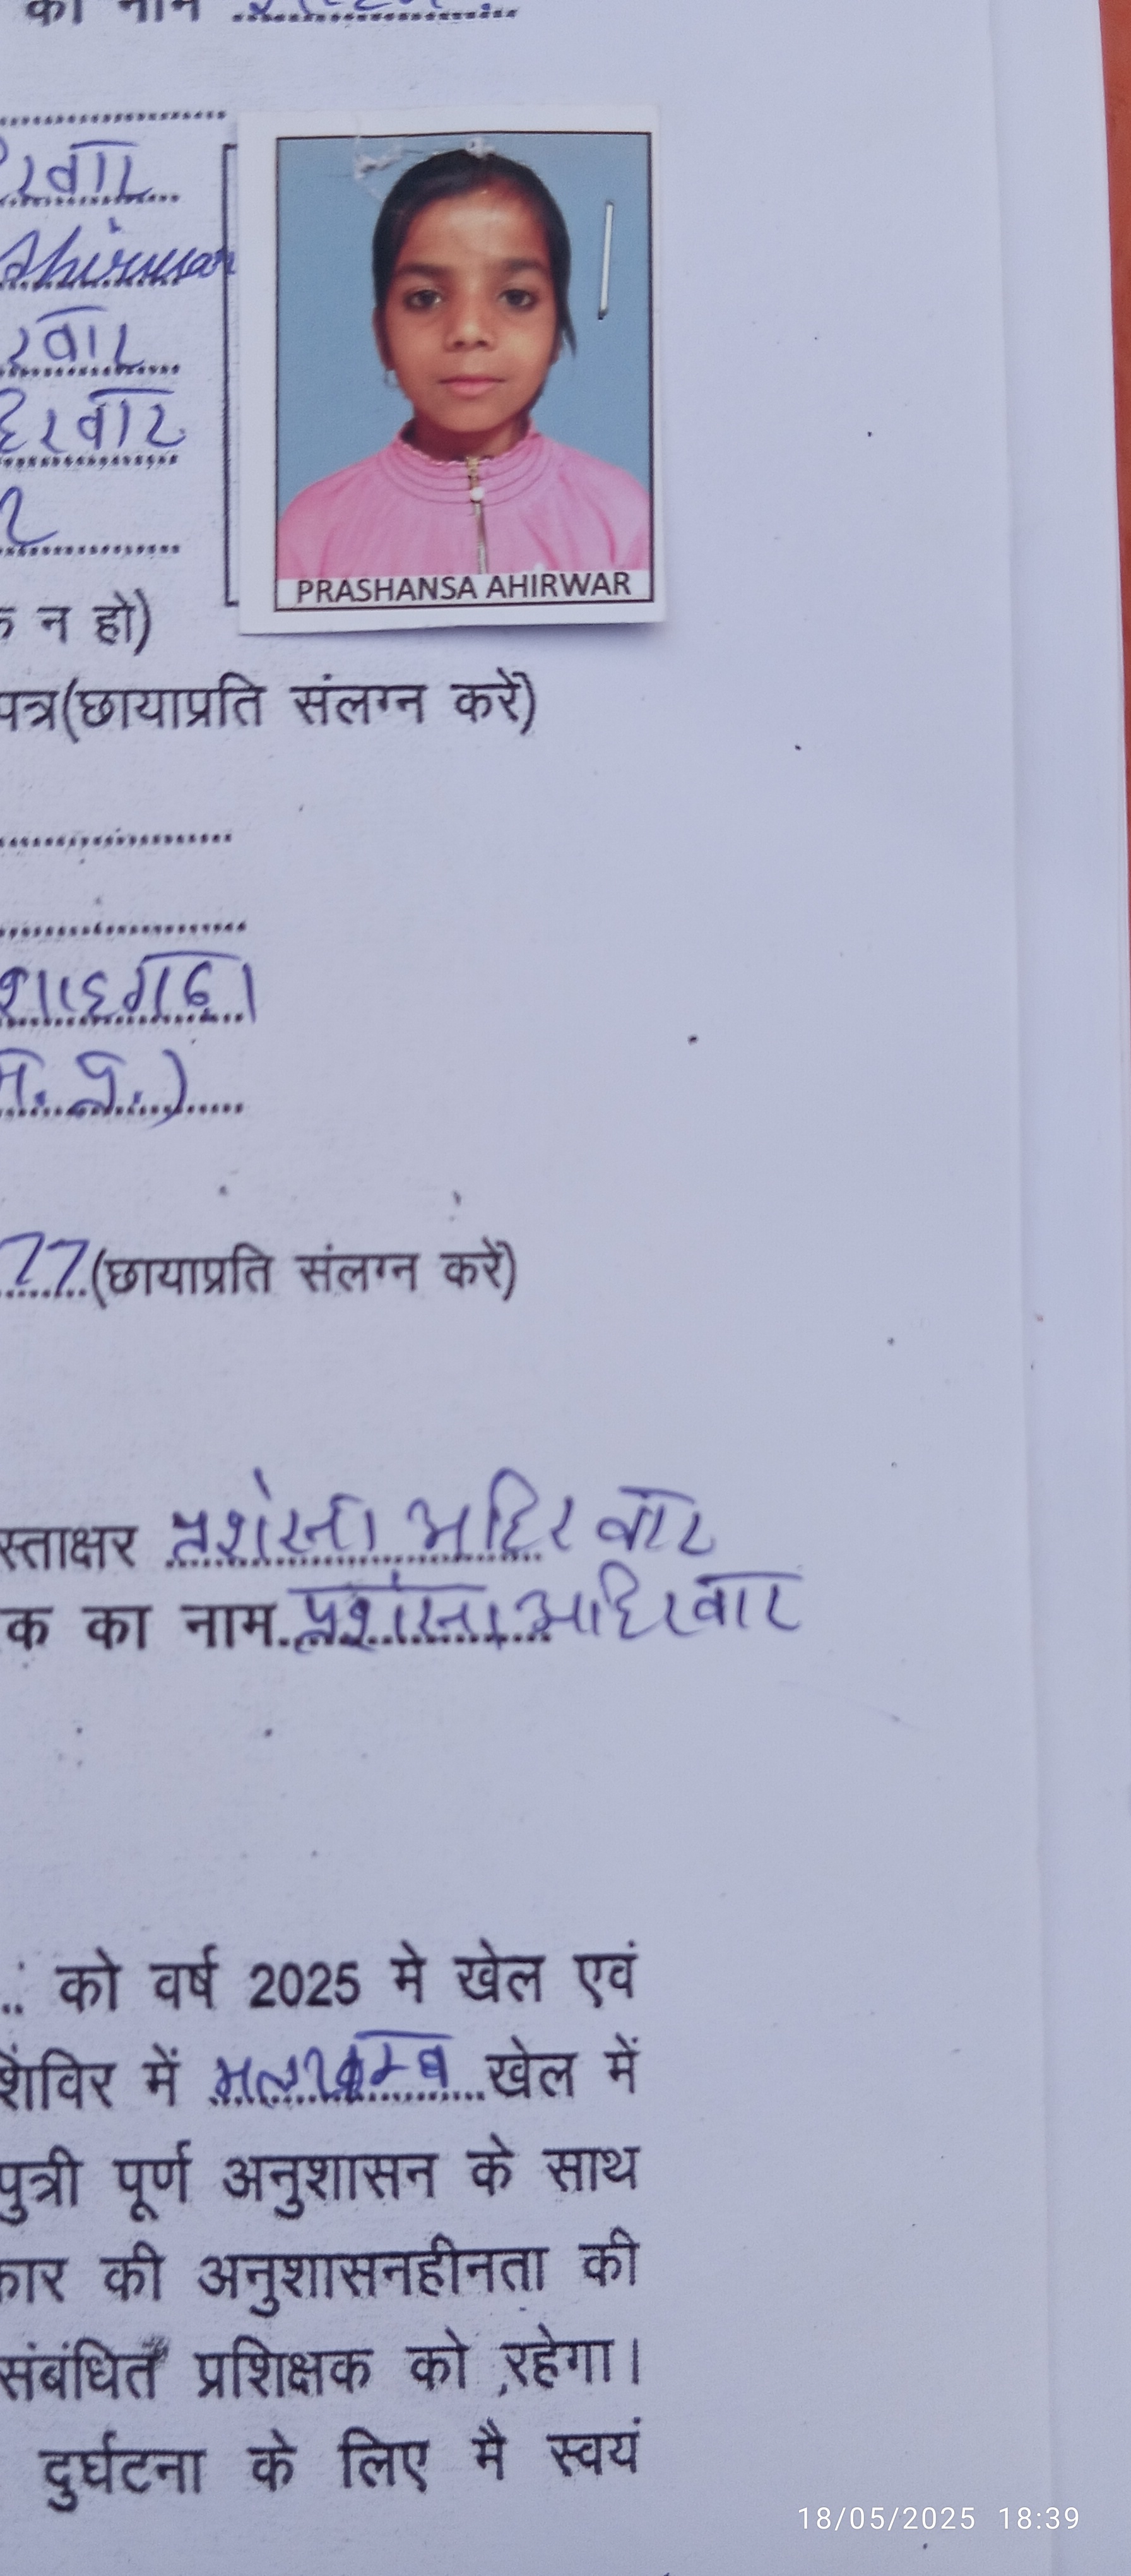 का नाम
रवार
Ahirwar
रवार
हिरवार
PRASHANSA AHIRWAR
न हो)
पत्र(छायाप्रति संलग्न करें)
शाहगढ़।
म. प्र.)
77(छायाप्रति संलग्न करें)
स्ताक्षर प्रशंसा अहिरवार
क का नाम प्रशंसा अहिरवार
को वर्ष 2025 मे खेल एवं
शिविर में मलखम्ब खेल में
पुत्री पूर्ण अनुशासन के साथ
कार की अनुशासनहीनता की
संबंधित प्रशिक्षक को रहेगा।
दुर्घटना के लिए मै स्वयं
18/05/2025 18:39